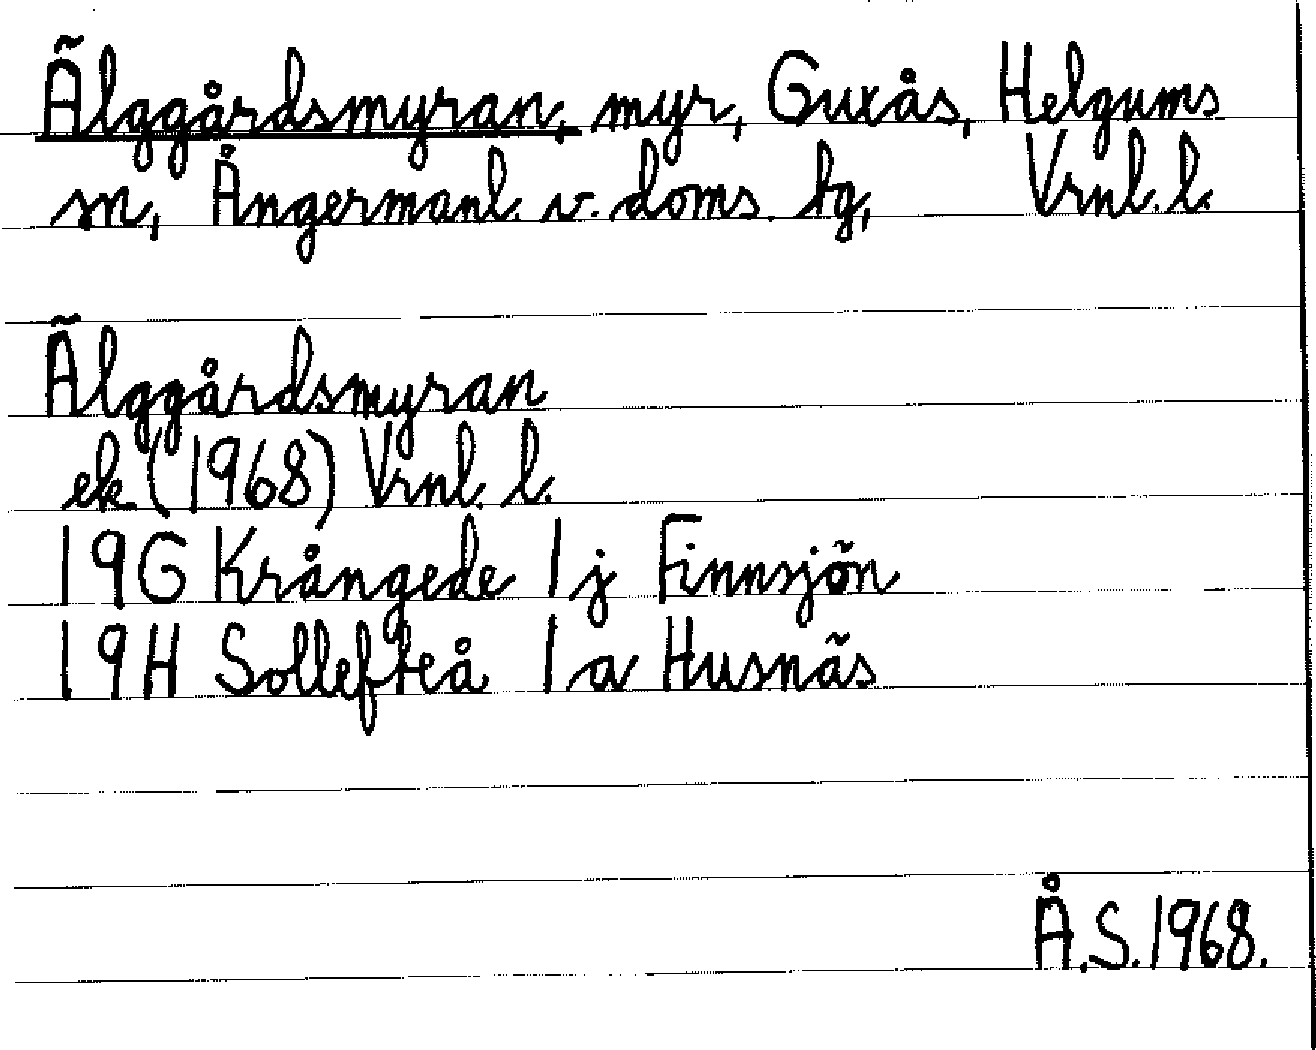 Älggårdsmyran, myr, Guxås, Helgums
sn, Ångermanl. v. doms. tg, Vrnl. l.
Älggårdsmyran
ek (1968) Vrnl. l.
19G Krångede 1j Finnsjön
19H Sollefteå 1a Husnäs
Å.S. 1968.